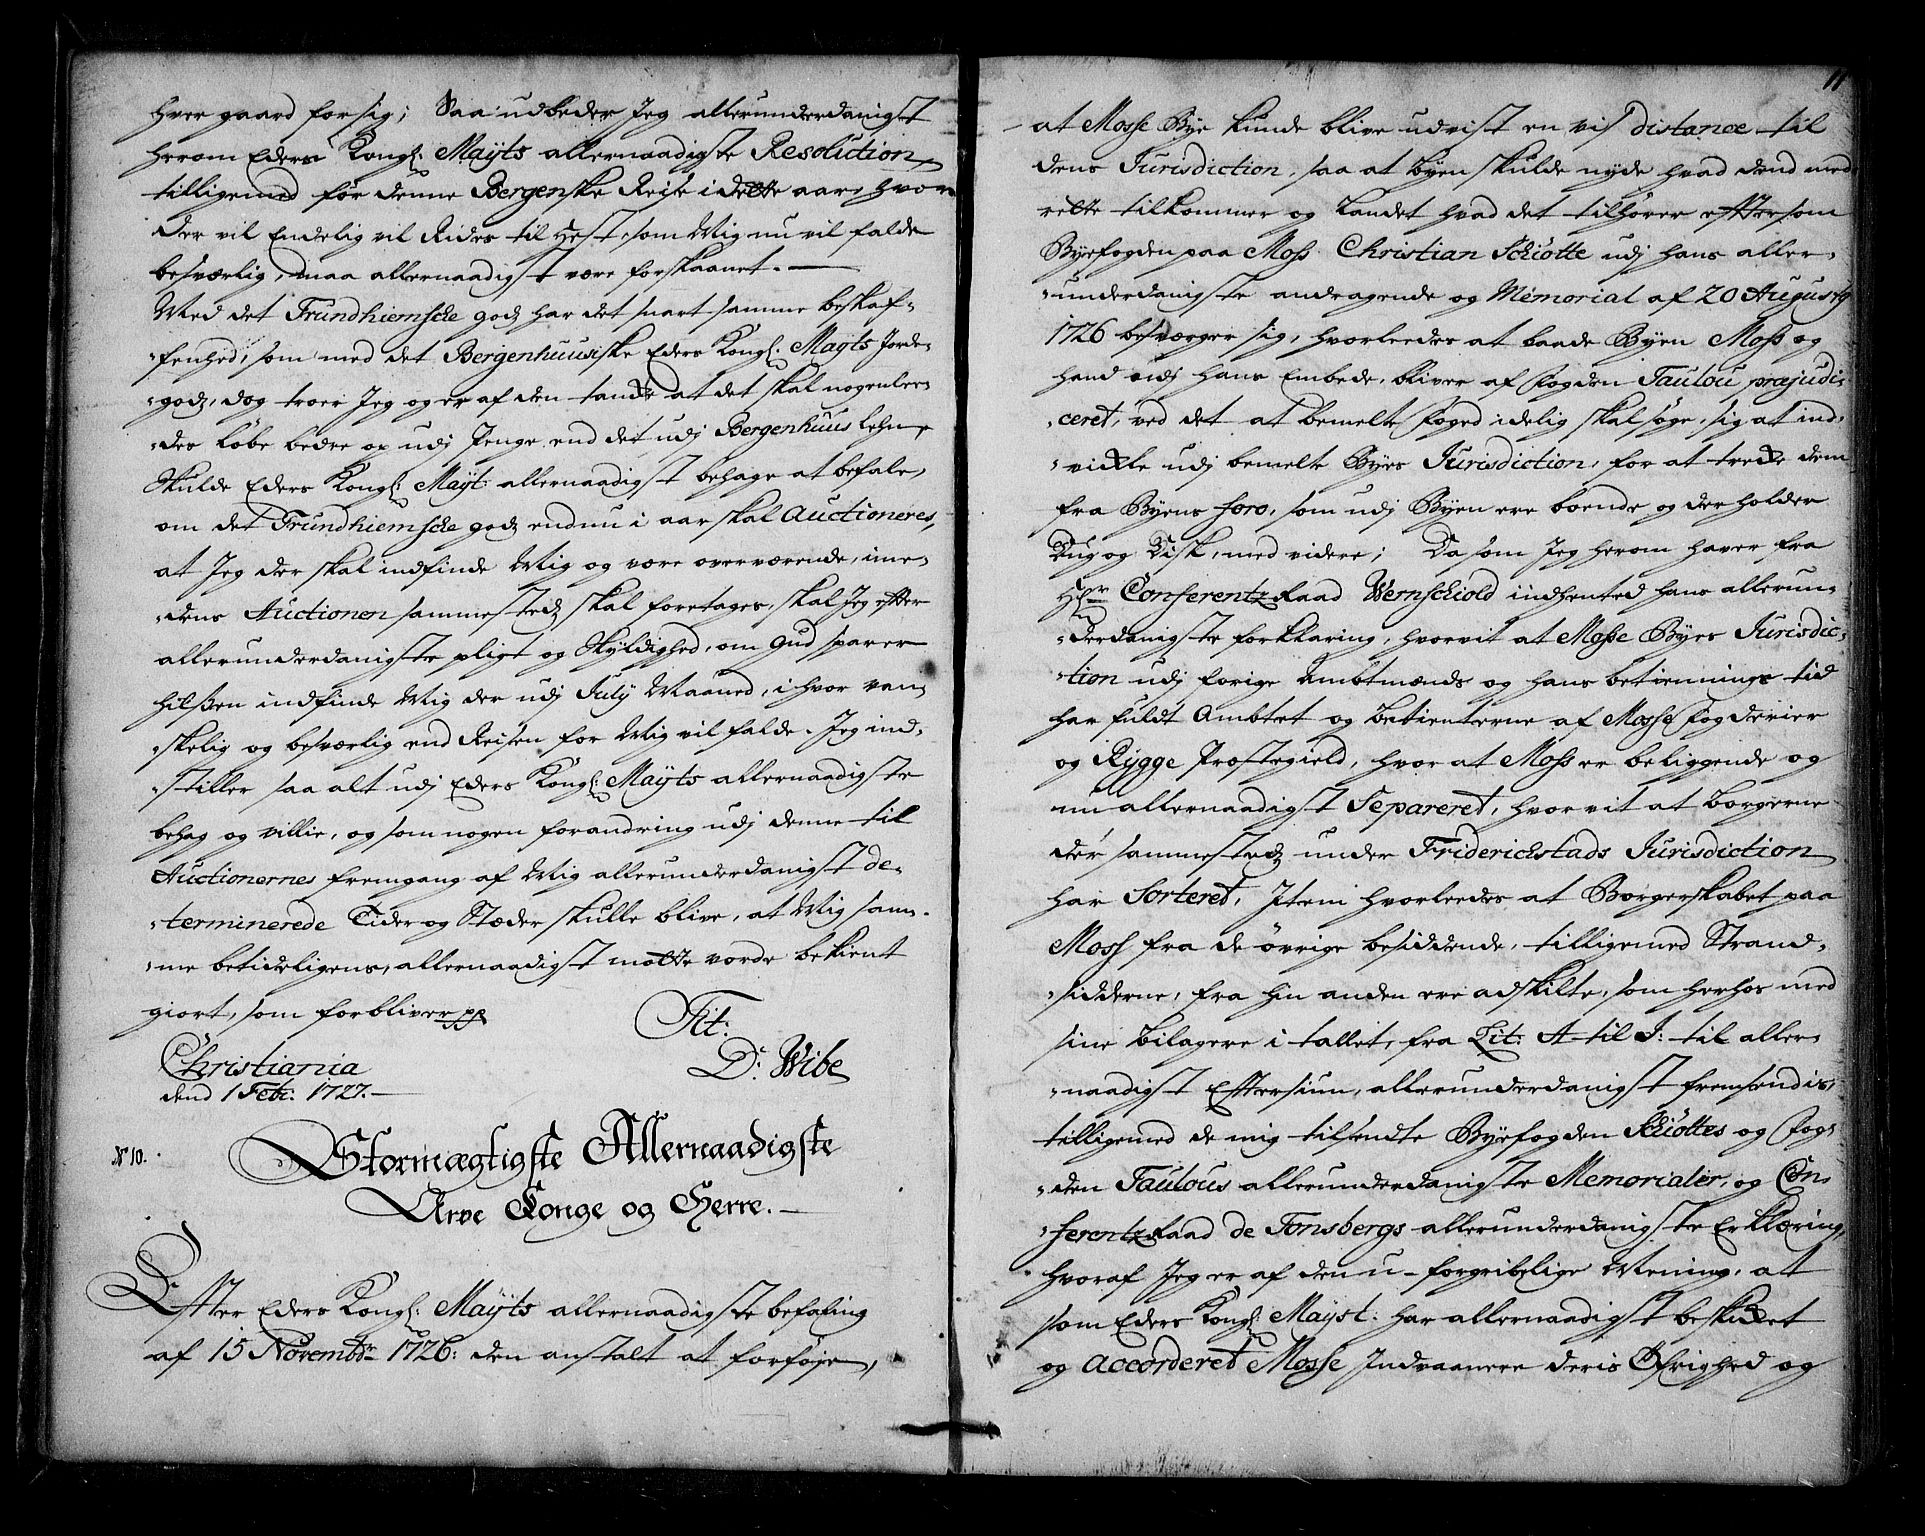 hver gaard for sig; Saa udbeder Jeg allerunderdanigst
herom Eders Kongl: Maÿts allernaadigste Resolution,
tilligemed før denne Bergenske Reise i dette aar, hvor
der vil Endelig vil Rides til Hest, som Mig nu vil falde
besværlig, maa allernaadigst være forskaanet.
Med det Trundhiemsche godz har det snart samme beskaf-
-fenhed, som med det Bergenhuusiske Eders Kongl: Maÿts Jorde-
-godz, dog troer Jeg og er af den tanke at det skal nogenlee-
-des løbe bedre op udj Penge, end det udj Bergenhuus Lehn,
Skulde Eders Kongl: Maÿt: allernaadigst behage at befale,
om det Trundhiemsche godz endnu i aar skal Auctioneres,
at Jeg der skal indfinde Mig og være overværende, ime-
-dens Auctionen sammestedz skal foretages, skal Jeg efter
allerunderdanigste pligt og Skyldighed, om Gud sparer
hilsen indfinde Mig der udj July Maaned, i hvor van-
-skelig og besværlig end Reisen for Mig vil falde. Jeg ind-
-stiller saa alt udj Eders Kongl: Maÿts allernaadigste
behag og villie, og som nogen forandring udj denne til
Auctionernes fremgang af Mig allerunderdanigst de-
-terminerede Tider og Stæder skulle blive, at Mig sam-
-me betideligens, allernaadigst motte vorde bekient
giort, som forbliver pp
Tit:
Christiania D: Wibe
dend 1 Febr: 1727.
No 10.
Stormægtigste Allernaadigste
Arve Konge og Herre.
Efter Eders Kongl: Maÿts allernaadigste befaling
af 15 Novembr 1726: den anstalt at forføje,
11
at Mosse Bye kunde blive udvist en vis distance til
dens Jurisdiction, saa at Byen skulde nyde hvad dend med
rette tilkommer og Landet hvad det tilhører eftersom
Byefogden paa Moss Christian Schiøtte udj hans aller-
-underdanigste andragende og Memorial af 20 Augusty
1726 besværger sig, hvorleedes at baade Byen Moss og
hand udj hans Embede, bliver af Fogden Taulou præjudi-
-ceret, ved det at bemelte Foged idelig skal søge, sig at ind-
-vikle udj bemelte Byes Jurisdiction, for at trekke dem
fra Byens foro, som udj Byen ere boende og der holder
Dug og Disk, med videre; Da som Jeg herom haver fra
Hr Conferentz Raad Wernschiold indhented hans allerun-
-derdanigste forklaring, hvorvit at Mosse Byes Jurisdic-
-tion udj forige Ambtmænds og hans betiennings tid
har fuldt Ambtet og betienterne af Mosse Fogderier
og Rygge Prostegield, hvor at Moss er beliggende og
nu allernaadigst Separeret, hvor vit at borgerne
der sammestedz under Friderichstads Jurisdiction
har Sorteret, Item hvorleedes at Borgerskabet paa
Moss fra de øvrige besiddende, tilligemed Strand-
-sidderne, fra hin anden ere adskilte, som herhos med
sine bilagere i tallet, fra Lit: A til J: til aller-
-naadigst Eftersiun, allerunderdanigst fremsendis,
tilligemed de mig tilsendte Byefogden Schiøttes og Fog-
-den Taulous allerunderdanigste Memorialer, og Con-
-ferentz Raad de Tonsbergs allerunderdanigste Erklæring,
hvoraf Jeg er af den u-forgribelige Mening, at
som Eders Kongl: Mayst: har allernaadigst beskikket
og accorderet Mosse Indvaanere deris Øfrighed og